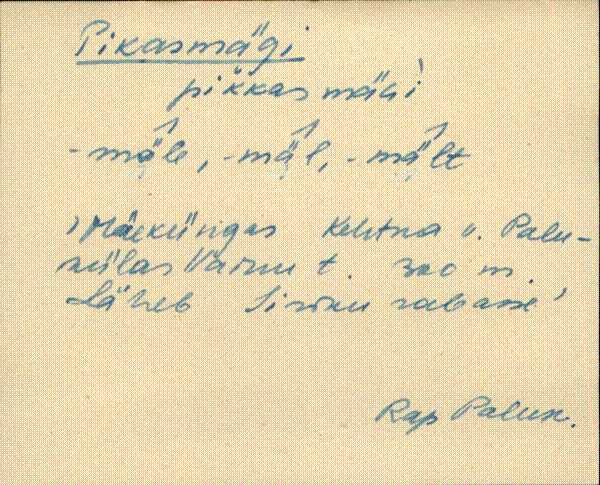 Pikasmägi
pikkasmäGi
-mäle, -mäl, -mält
'Mäeküngas Kehtna v. Palu-
külas Vainu t. 300 m.
Läheb rabasse'
Rap Paluk.